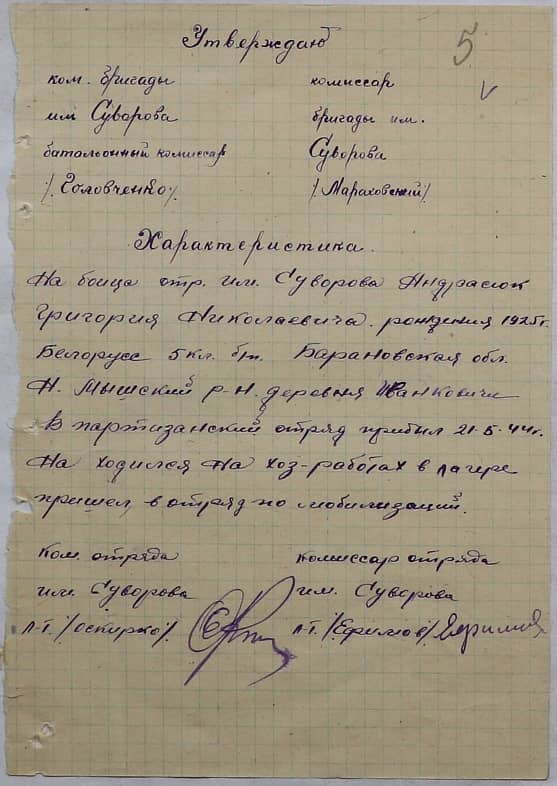 Утверждаю
5
ком. бригады комиссар
им Суворова бригады им.
батальонный комиссар Суворова
/. Головченко/. /. Мараховский/.
Характеристика.
На бойца отр. им. Суворова Андрасюк
Григория Николаевича. рождения 1925г.
Белорусс 5кл. б/п. Барановская обл.
Н. Мышский р-н. деревня Иванковичи
В партизанский отряд прибыл 21.5.44г.
На ходился На хоз-работах в лагере
пришел, в отряд по мобилизаций.
Ком. отряда комиссар отряда
им. Суворова им. Суворова
л-т. /Остирко/. л-т. /Ефимов/ Ефимов